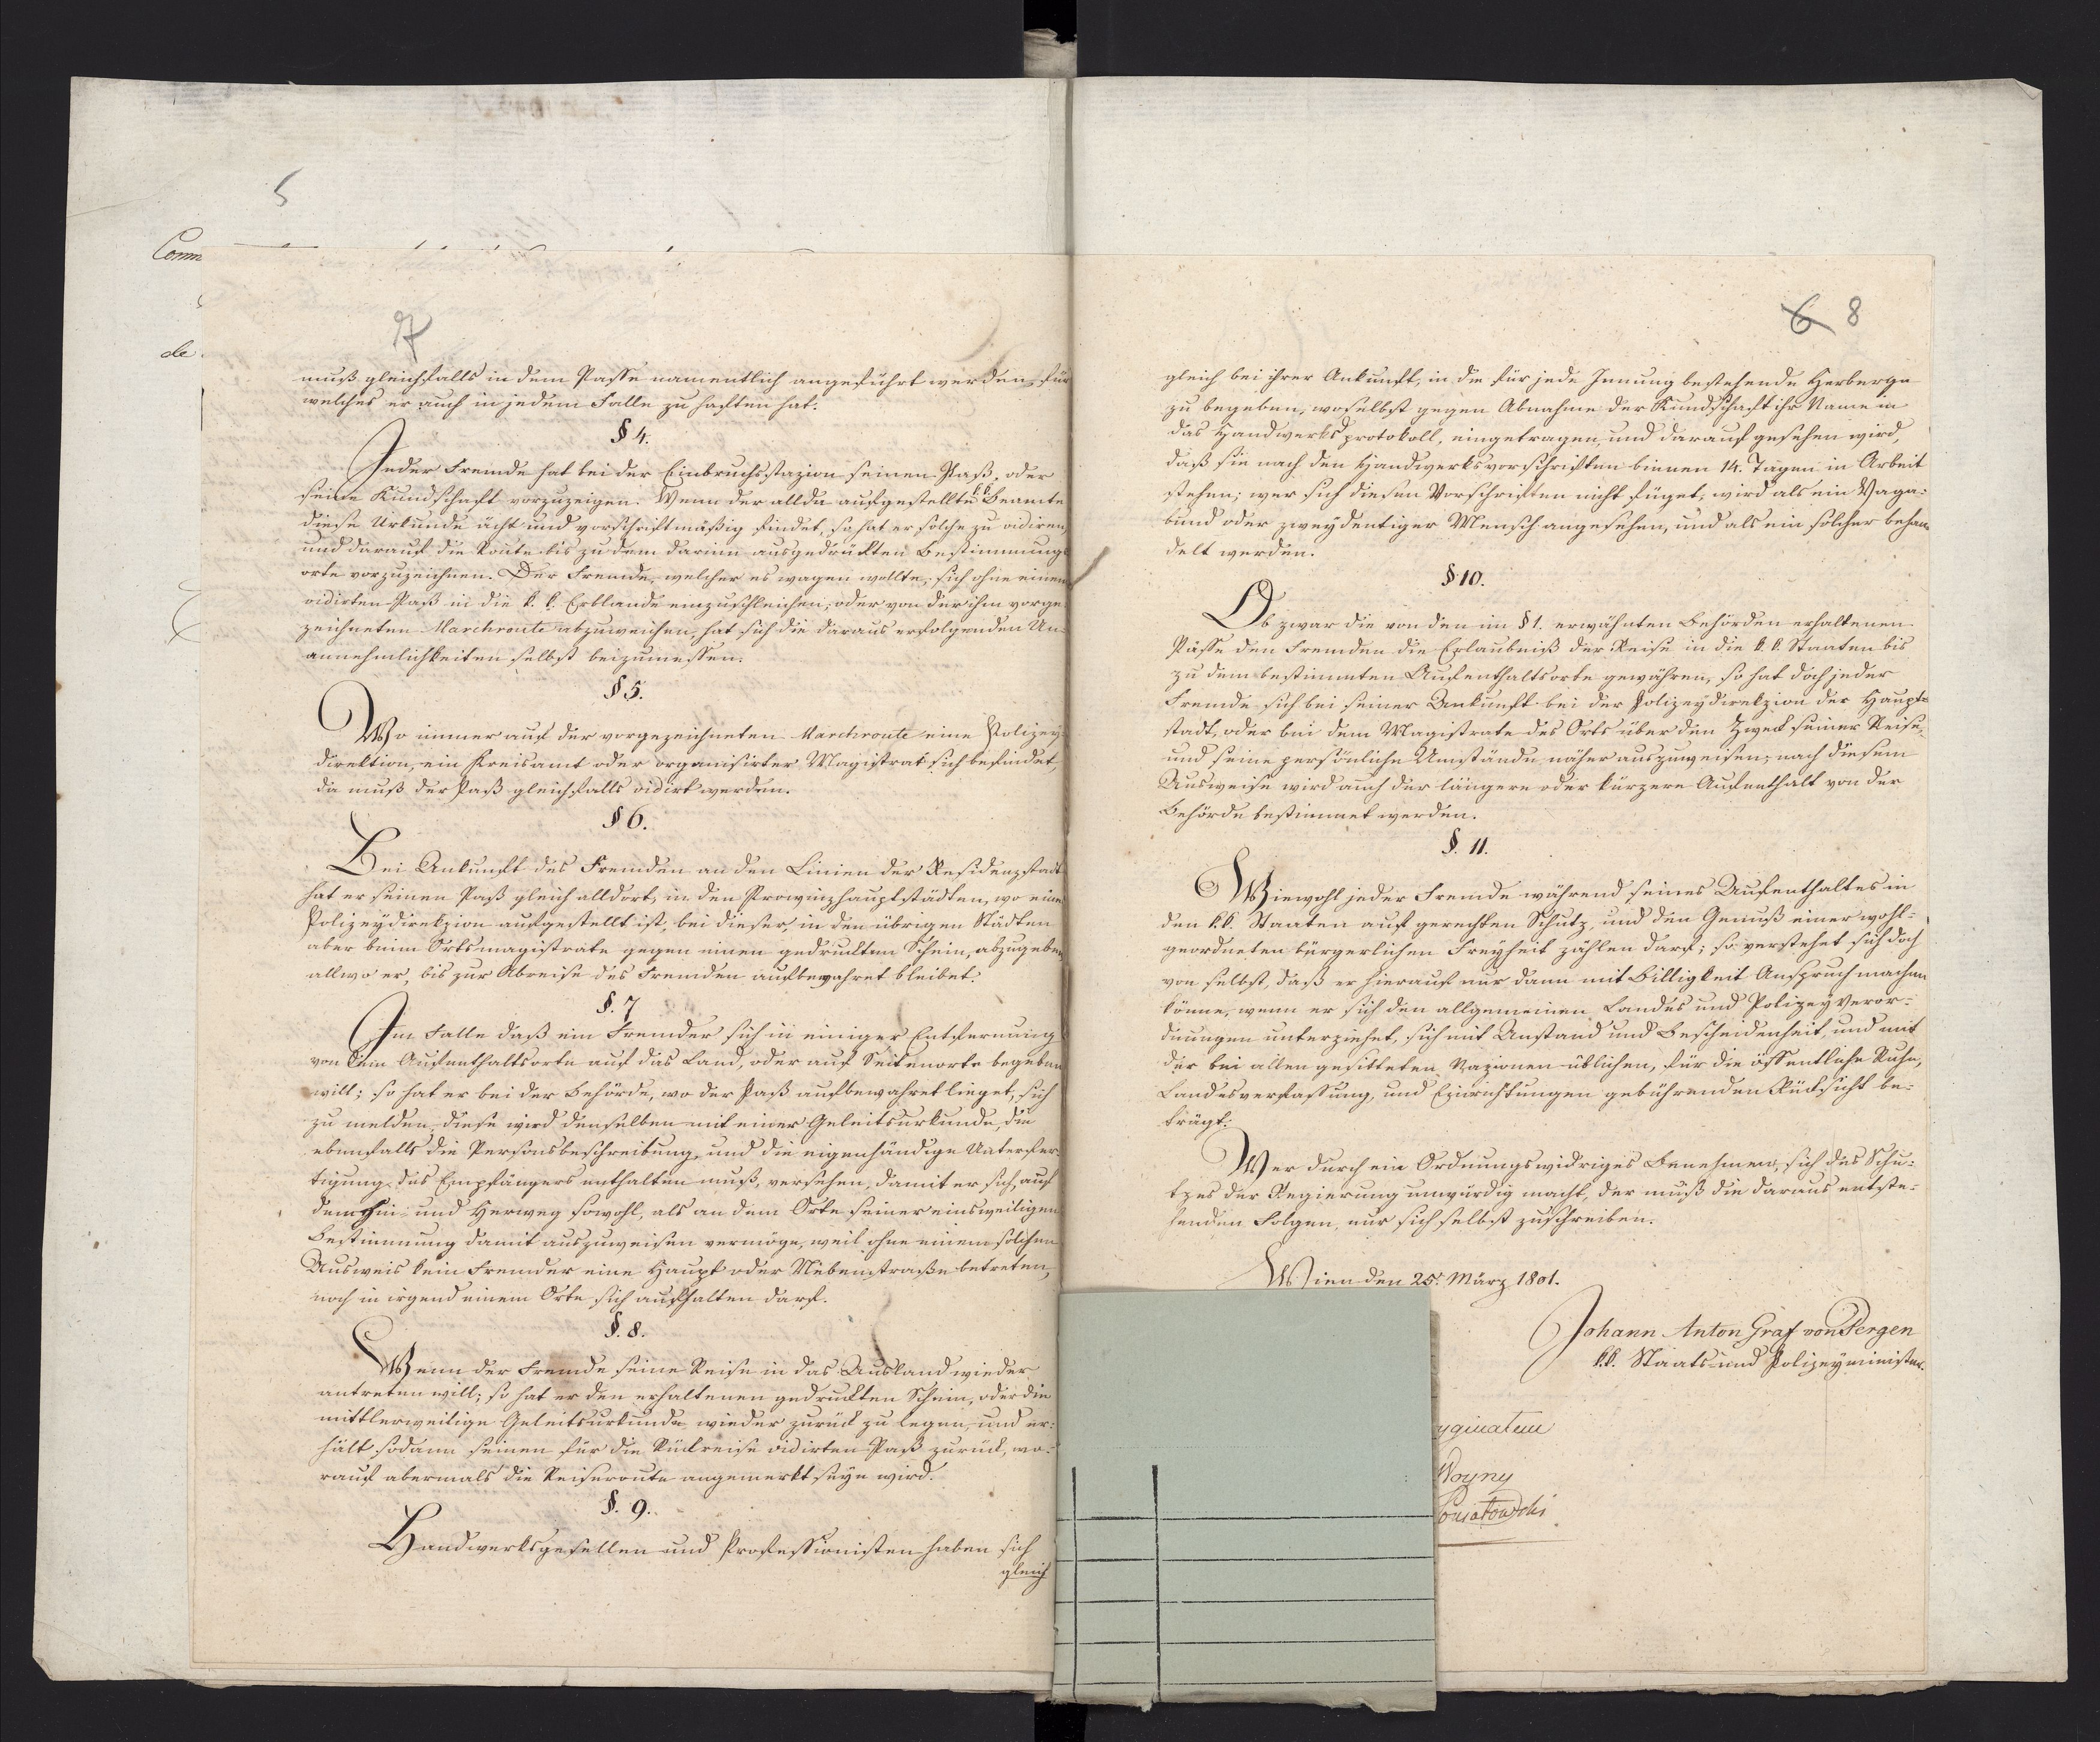 5
Comm
de
7
muß gleichfalls in dem Passe namentlich angeführt werden, für
welches er auch in jedem Falle zu haften hat.
§ 4.
Jeder Fremde hat bei der Einbruchsstazion seinen Paß, oder
seine Kundschaft vorzuzeigen. Wenn der allda aufgestellte k.k. Beamte
diese Urkunde ächt und vorschriftmäßig findet, so hat er solche zu vidiren,
und darauf die Route bis zu dem darinn ausgedrükten Bestimmungs
orte vorzuzeichnen. Der Fremde, welcher es wagen wollte, sich ohne einem
vidirten Paß in die k. k. Erblande einzuschleichen, oder von der ihm vorge
zeichneten Marchroute abzuweichen, hat sich die daraus erfolgenden Un-
annehmlichkeiten selbst beizumessen.
§ 5.
Wo immer auf der vorgezeichneten Marchroute eine Polizey-
direktion, ein Kreisamt oder organisirter Magistrat sich befindet,
da muß der Paß gleichfalls vidirt werden.
§ 6.
Bei Ankunft des Fremden an den Linien der Residenzstadt
hat er seinen Paß gleich alldort, in den Provinzhauptstädten, wo eine
Polizeydirekzion aufgestellt ist, bei dieser, in den übrigen Städten
aber beim Ortsmagistrate gegen einen gedruckten Schein, abzugeben
allwo er, bis zur Abreise des Fremden aufbewahret bleibet.
§. 7
Im Falle daß ein Fremder sich in einiger Entfernung
von dem Aufenthaltsorte auf das Land, oder auf Seitenorte begeben
will; so hat er bei der Behörde, wo der Paß aufbewahret lieget, sich
zu melden, diese wird denselben mit einer Geleitsurkunde, die
ebenfalls die Personsbeschreibung, und die eigenhändige Unterfer
tigung des Empfängers enthalten muß, versehen, damit er sich auf
dem Hin- und Herweg sowohl, als an dem Orte seiner einsweiligen
Bestimmung damit auszuweisen vermöge, weil ohne einem solchen
Ausweis kein Fremder eine Haupt oder Nebenstraße betreten,
noch in irgend einem Orte sich aufhalten darf.
§. 8.
Wenn der Fremde seine Reise in das Ausland wieder
antreten will; so hat er den erhaltenen gedruckten Schein, oder die
mittlerweilige Geleitsurkunde wieder zurück zu legen, und er-
hält sodann seinen für die Rückreise vidirten Paß zurück, wo-
rauf abermals die Reiseroute angemerkt seyn wird.
§. 9.
Handwerksgesellen und Professionisten haben sich
gleich
6 8
gleich bei ihrer Ankunft, in die für jede Innung bestehende Herberge
zu begeben, woselbst gegen Abnahme der Kundschaft ihr Name in
das Handwerksprotokoll, eingetragen, und darauf gesehen wird,
daß sie nach den Handwerksvorschriften binnen 14. Tägen in Arbeit
stehen; wer sich diesen Vorschriften nicht füget, wird als ein Vaga-
bund oder zweydeutiger Mensch angesehen, und als ein solcher behan
delt werden.
§ 10.
Ob zwar die von den im § 1. erwähnten Behörden erhaltenen
Pässe den Fremden die Erlaubniß der Reise in die k. k. Staaten bis
zu dem bestimmten Aufenthaltsorte gewähren, so hat doch jeder
Fremde sich bei seiner Ankunft bei der Polizeydirekzion der Haupt-
stadt, oder bei dem Magistrate des Orts über den Zweck seiner Reise,
und seine persönliche Umstände näher auszuweisen, nach diesem
Ausweise wird auch der längere oder kürzere Aufenthalt von der
Behörde bestimmet werden.
§. 11.
Wiewohl jeder Fremde während seines Aufenthaltes in
den k.k. Staaten auf gerechten Schutz, und den Genuß einer wohl-
geordneten bürgerlichen Freyheit zählen darf; so verstehet sich doch
von selbst, daß er hierauf nur dann mit Billigkeit Anspruch machen
könne, wenn er sich den allgemeinen Landes und Polizey Veror-
dnungen unterziehet, sich mit Anstand und Bescheidenheit, und mit
der bei allen gesitteten Nazionen üblichen, für die öffentliche Ruhe,
Landesverfassung, und Einrichtungen gebührenden Rücksicht be-
trägt.
Wer durch ein Ordnungswidriges Benehmen, sich des Schu-
tzes der Regierung unwürdig macht, der muß die daraus entste-
henden Folgen, nur sich selbst zuschreiben.
Wien den 25t. März 1801.
Johann Anton Graf von Pergen
k.k. Staats- und Polizeyminister.
yginatem
Woyny
Poniatowski